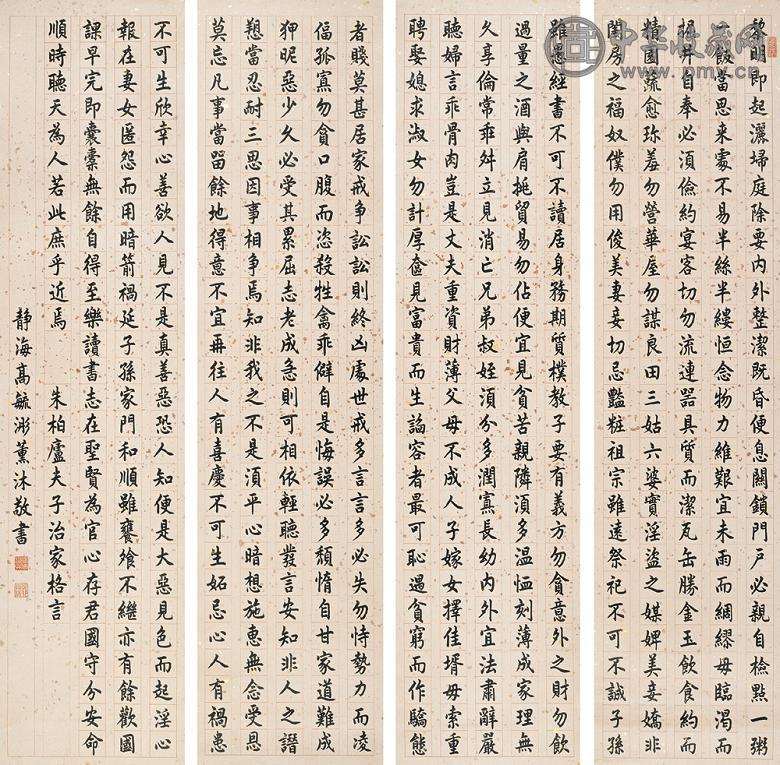 黎明即起灑埽庭除要內外整潔既昏便息關鎖門戶必親自檢點一粥
一飯當思來處不易半絲半縷恒念物力維艱宜未雨而綢繆毋臨渴而
掘井自奉必須儉約宴客切勿流連器具質而潔瓦缶勝金玉飲食約而
精園蔬愈珍羞勿營華屋勿謀良田三姑六婆實淫盜之媒婢美妾嬌非
閨房之福奴僕勿用俊美妻妾切忌豔粧祖宗雖遠祭祀不可不誠子孫
雖愚經書不可不讀居身務期質樸教子要有義方勿貪意外之財勿飲
過量之酒與肩挑貿易勿佔便宜見貧苦親隣須多溫恤刻薄成家理無
久享倫常乖舛立見消亡兄弟叔姪須分多潤寡長幼內外宜法肅辭嚴
聽婦言乖骨肉豈是丈夫重資財薄父母不成人子嫁女擇佳壻毋索重
聘娶媳求淑女勿計厚奩見富貴而生謟容者最可恥遇貧窮而作驕態
者賤莫甚居家戒爭訟訟則終凶處世戒多言言多必失勿恃勢力而凌
偪孤寡勿貪口腹而恣殺牲禽乖僻自是悔誤必多頹惰自甘家道難成
狎昵惡少久必受其累屈志老成急則可相依輕聽發言安知非人之譖
愬當忍耐三思因事相爭焉知非我之不是須平心暗想施惠無念受恩
莫忘凡事當留餘地得意不宜再往人有喜慶不可生妬忌心人有禍患
不可生欣幸心善欲人見不是真善惡恐人知便是大惡見色而起淫心
報在妻女匿怨而用暗箭禍延子孫家門和順雖饔飧不繼亦有餘歡國
課早完即囊橐無餘自得至樂讀書志在聖賢為官心存君國守分安命
順時聽天為人若此庶乎近焉　朱柏廬夫子治家格言
靜海高毓浵薰沐敬書
中华收藏网
www.pmy.cn